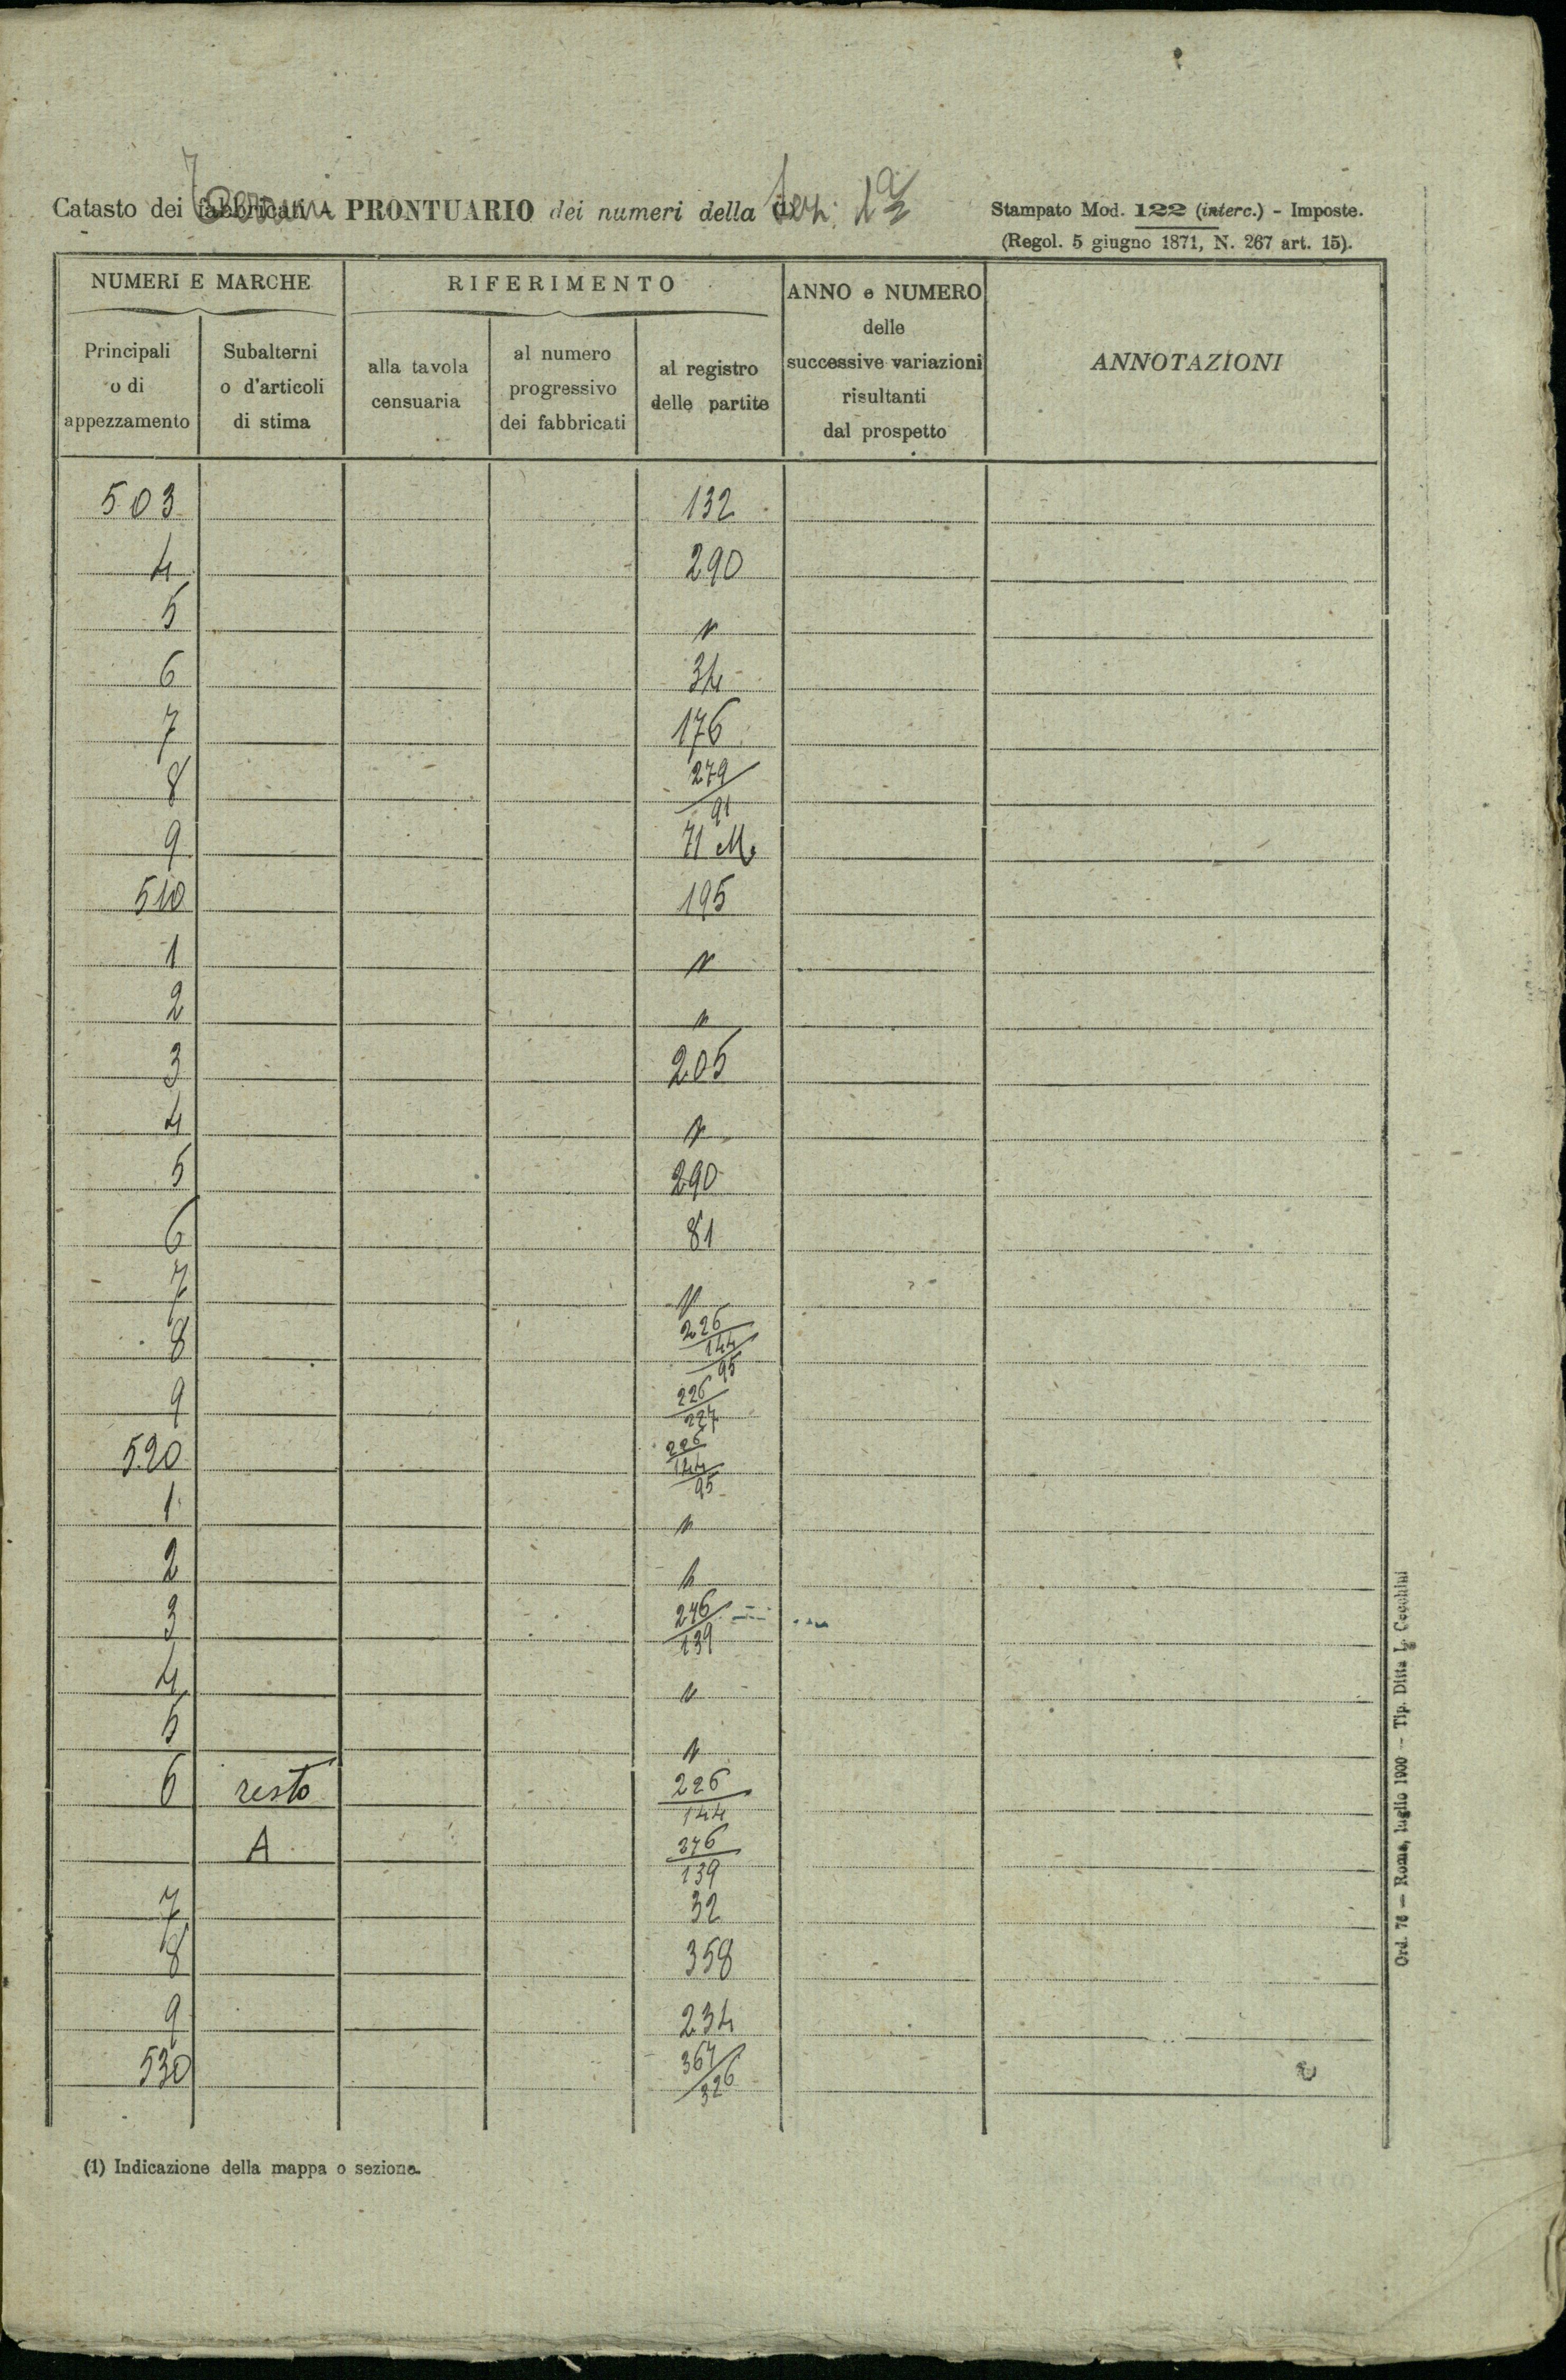 Catasto dei fabbricati Terreni PRONTUARIO dei numeri della (1) Sez. 1ª
Stampato Mod. 122 (interc.) - Imposte.
(Regol. 5 giugno 1871, N. 267 art. 15).
NUMERI E MARCHE
RIFERIMENTO
ANNO e NUMERO
delle
successive variazioni
risultanti
dal prospetto
ANNOTAZIONI
Principali
o di
appezzamento
Subalterni
o d'articoli
di stima
alla tavola
censuaria
al numero
progressivo
dei fabbricati
al registro
delle partite
503 132
4 290
5 "
6 34
7 176
8 279/91
9 71 M.
510 195
1 "
2 "
3 205
4 "
5 290
6 81
7 "
8 226/144/95
9 226/227
520 226/144/95
1 "
2 "
3 246/139
4 "
5 "
6 resto 226/144
A 346/139
7 32
8 358
9 234
530 367/326
(1) Indicazione della mappa o sezione.
Ord. 76 — Roma, luglio 1900 — Tip. Ditta L. Cecchini